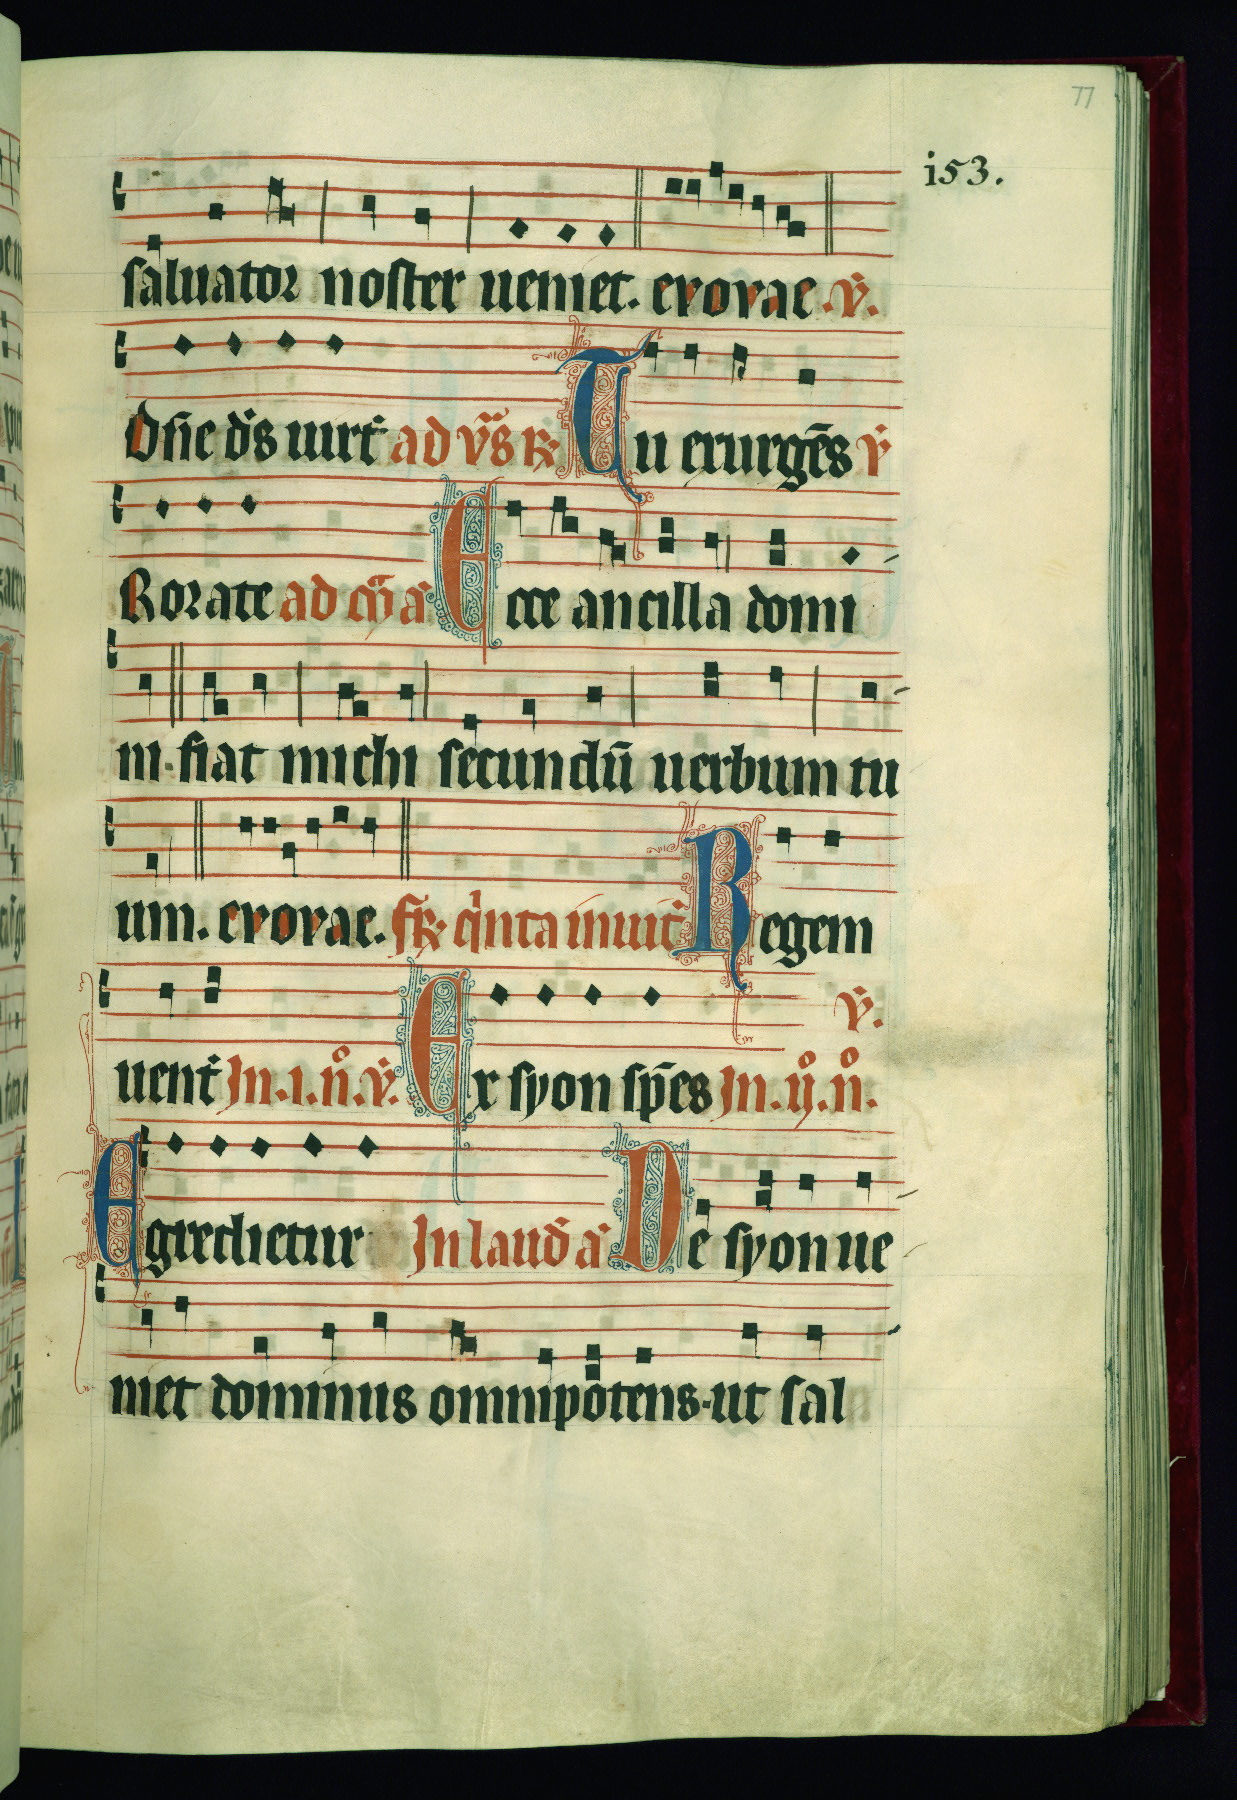 77
i53.
saluator noster ueniet. evovae .v̇.
Dn̄e de᷒s uirt᷒ ad vs̄ ℟ Tu exurgēs v̇
Rorate ad a᷒ Ecce ancilla domi
ni · fiat michi secundū uerbum tu
um. evovae. f℟ qͥnta inuit᷒ Regem
v̇.
uent᷒ In .i. n̊. v̇. Ex syon sp̄es In .ij. n̊.
Egredietur In laud᷒ a᷒ De syon ue
niet dominus omnipotens · ut sal